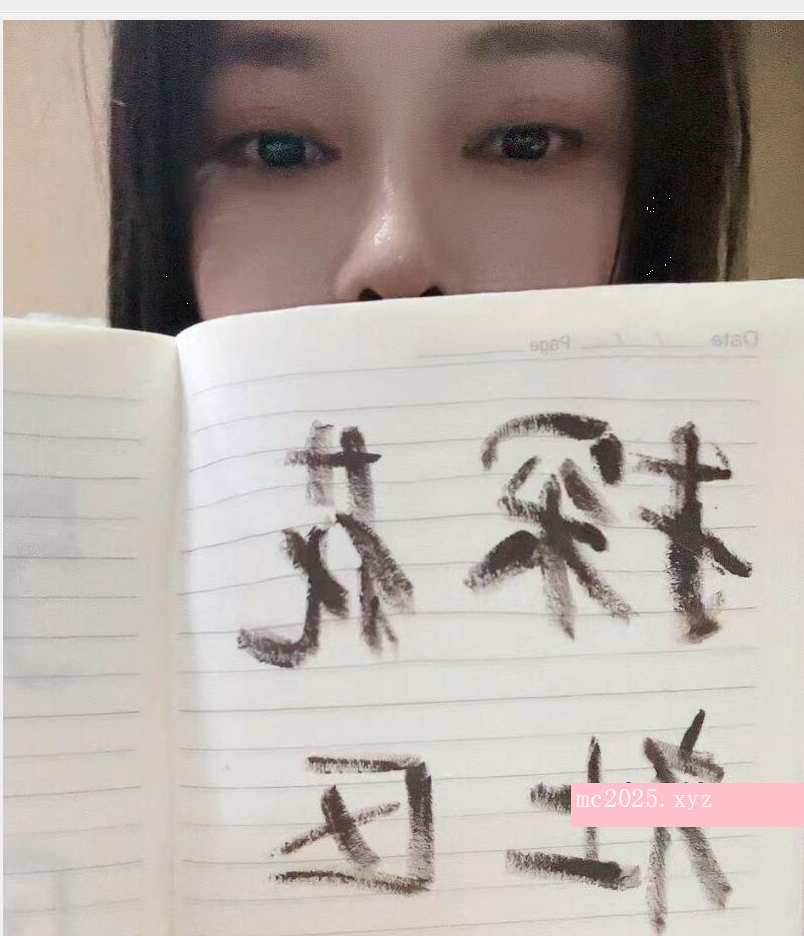 Date / / Page
探花
社区
mc2025.xyz